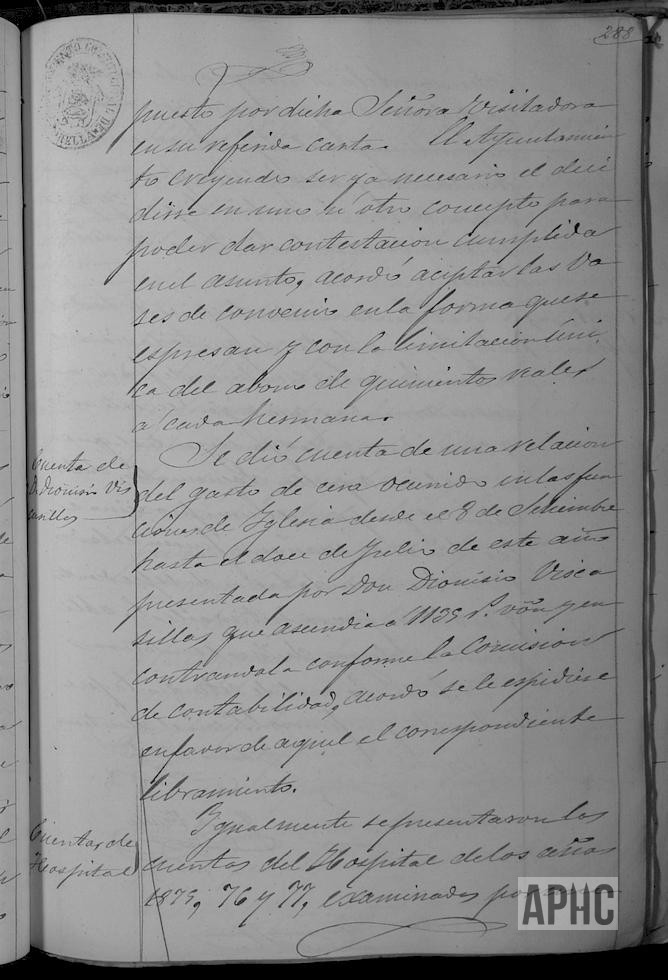 288
puesto por dicha Señora Visitadora
en su referida carta. El Ayuntamien
to creyendo ser ya necesario el deci
dirse en uno ú otro concepto para
poder dar contestacion cumplida
en el asunto, acordó aceptar las va
ses de convenio en la forma que se
espresan y con la limitacion úni
ca del abono de quinientos reales
á cada hermana.
Cuenta de
D. Dionisio Vis
casillas
Se dió cuenta de una relacion
del gasto de cera ocurrido en las fun
ciones de Iglesia desde el 8 de Setiembre
hasta el doce de Julio de este año
presentada por Don Dionisio Visca
sillas que ascendia a 1139 r.^s von y en
contrandola conforme la Comision
de contabilidad, acordó se le espidiese
en favor de aquel el correspondiente
libramiento.
Cuentas de
Hospital
Igualmente se presentaron las
cuentas del Hospital de los años
1875, 76 y 77, examinadas por
APHC